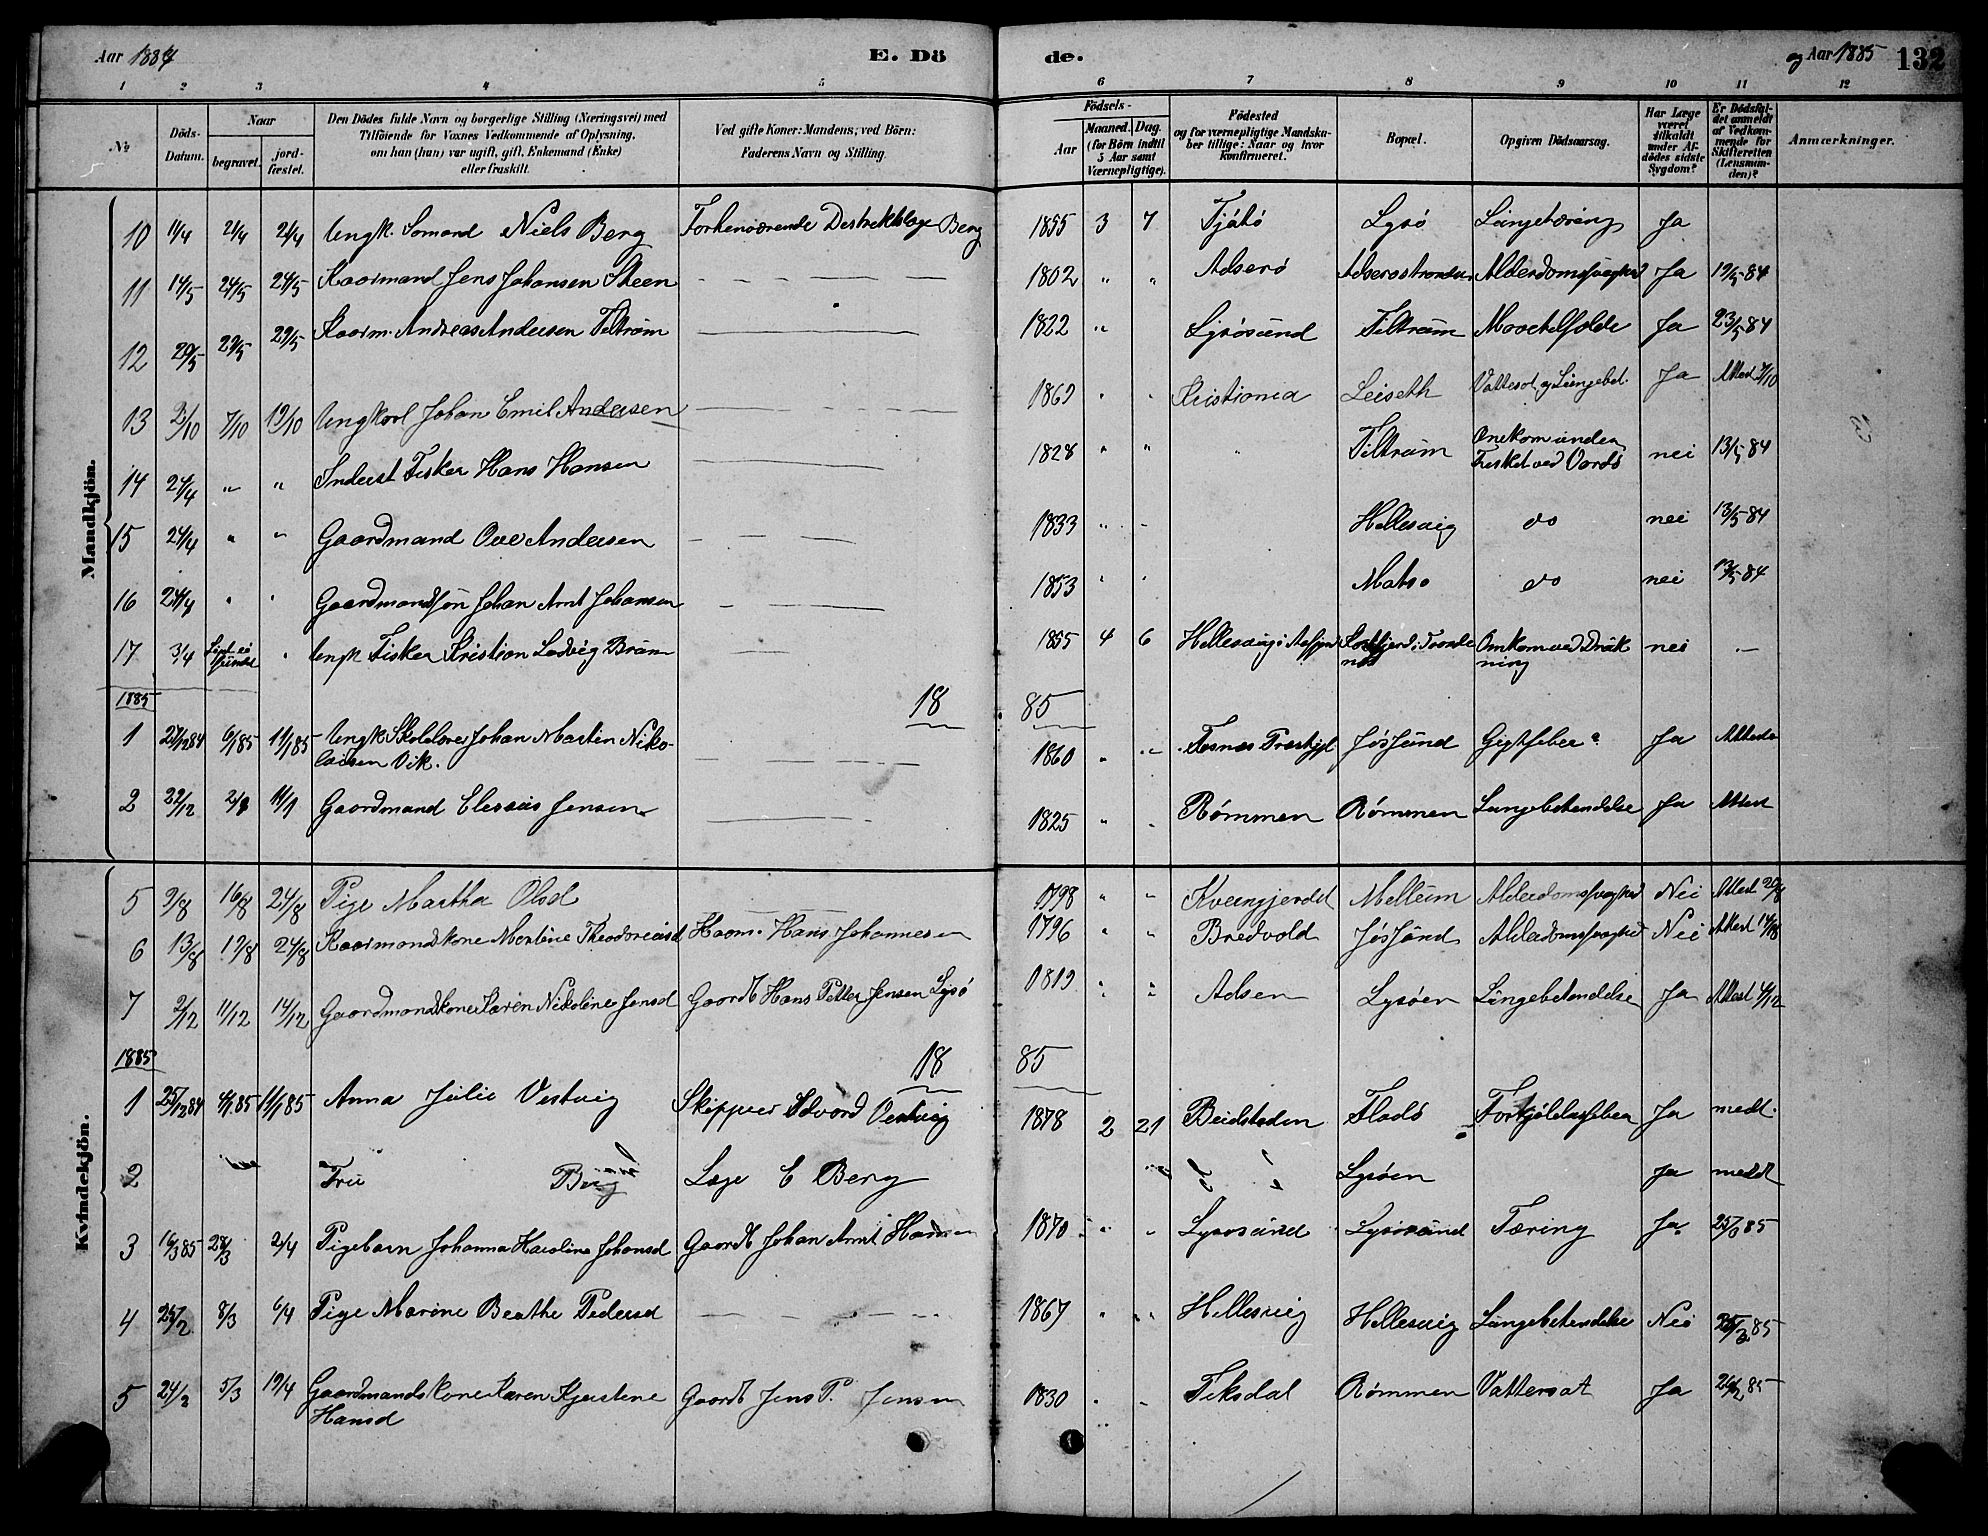 Aar 1884
E. Dö
de.
og Aar 1885
132
1 2 3 4 5 6 7 8 9 10 11 12
No
Döds-Datum.
Naar
begravet.
jord-fæstet.
Den Dödes fulde Navn og borgerlige Stilling (Næringsvei) med
Tilföiende for Voxnes Vedkommende af Oplysning,
om han (hun) var ugift, gift, Enkemand (Enke)
eller fraskilt.
Ved gifte Koner: Mandens; ved Börn:
Faderens Navn og Stilling.
Födsels-
Aar
Maaned. Dag.
(for Börn indtil
5 Aar samt
Værnepligtige).
Födested
og for værnepligtige Mandska-
ber tillige: Naar og hvor
konfirmeret.
Bopæl.
Opgiven Dödsaarsag.
Har Læge
været
tilkaldt
under Af-
dödes sidste
Sygdom?
Er Dödsfal-
det anmeldt
af Vedkom-
mende for
Skifteretten
(Lensman-
den)?
Anmærkninger.
Mandkjön.
10 11/4 21/4 21/4 Ungk. Somand Niels Berg Forhenværende Destriktslæge Berg 1855 3 7 Tjötö Lysö Lungetæring Ja
11 14/5 24/5 24/5 Kaarmand Jens Johansen Steen 1802 " " Adserö Adserostranden Alderdomssvaghed Ja 19/5 84
12 20/5 29/5 29/5 Kaarm. Andreas Andersen Teltrum 1822 " Lysösund Teltrum Ja 23/5 84
13 2/10 7/10 19/10 Ungkarl Johan Emil Andersen 1869 " " Kristiania Leiseth Vattersot og Lungebet. Ja Attest 7/10
14 24/4 " " Inderst Fisker Hans Hansen 1828 " " " Teltrum Omkom under
Fisket ved Vardö nei 13/5 84
15 24/4 " " Gaardmand Ove Andersen 1833 " " Hellesvig do nei 13/5 84
16 24/4 " " Gaardmandssön Johan Arnt Johansen 1853 " " Matsö do nei 13/5 84
17 3/4 Liget ei
fundet " Ungk Fisker Kristian Ludvig Bruun 1855 4 6 Omkom ved Druk
ning nei
1885 18 85
1 27/12 84 6/1 85 11/1 85 Ungk Skolelærer Johan Martin Niko-
laisen Vik. 1860 " " Fosnæs Præstgjd Jössund Gigtfeber Ja Attest
2 29/12 2/1 11/1 Gaardmand Elersius Jensen 1825 " " Römmen Römmen Lungebetendelse Ja Attest
Kvindekjön.
5 9/8 16/8 24/8 Pige Martha Olsd 1798 " " Kvengjerdet Mellum Alderdomssvaghed Nei Attest 20/8
6 13/8 19/8 24/8 Kaarmandskone Merline Theodoriusd Kaarm. Hans Johannesen 1796 " " Bredvold Jössund Alderdomssvaghed Nei Attest 14/8
7 2/12 11/12 14/12 Gaardmandskone Karen Nikoline Jensd Gaardb Hans Petter Jensen Lysö 1819 " " Adsen Lysöen Lungebetendelse Ja Attest 4/12
1885 18 85
1 25/12 84 4/1 85 11/1 85 Anna Julie Vestvig Skipper Edvard Vestvig 1878 2 21 Beidstaden Fladö Forkjölelsesfeber Ja medt.
2 Fru Berg Læge C Berg Lysöen Ja meddt
3 16/3 85 28/3 2/4 Pigebarn Johanna Karoline Johansd Gaardb Johan Arnt Hansen 1870 " " Lysosund Lysosund Tæring Ja 25/3 85
4 25/2 8/3 6/4 Pige Marine Beathe Pedersd 1867 " " Hellesvig Hellesvig Lungebetendelse Nei 25/2 85
5 24/2 5/3 19/4 Gaardmandskone Karen Kjerstine
Hansd Gaardb Jens P. Jensen 1830 " " Teksdal Römmen Vattersot Ja 26/2 85